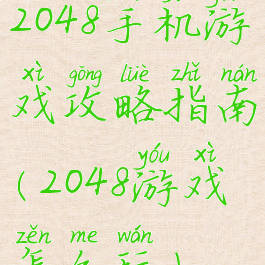 2048手机游
xì gōng lüè zhǐ nán
戏攻略指南
yóu xì
(2048游戏
zěn me wán
怎么玩)